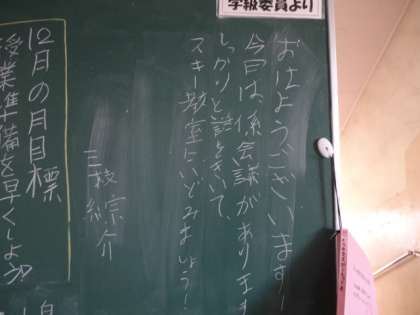 学級委員より
おはようございます！
今日は、係会議があります
しっかりと話をきいて、
スキー教室にいどみましょう！
三枝 綜介
12月の月目標
授業準備を早くしよう